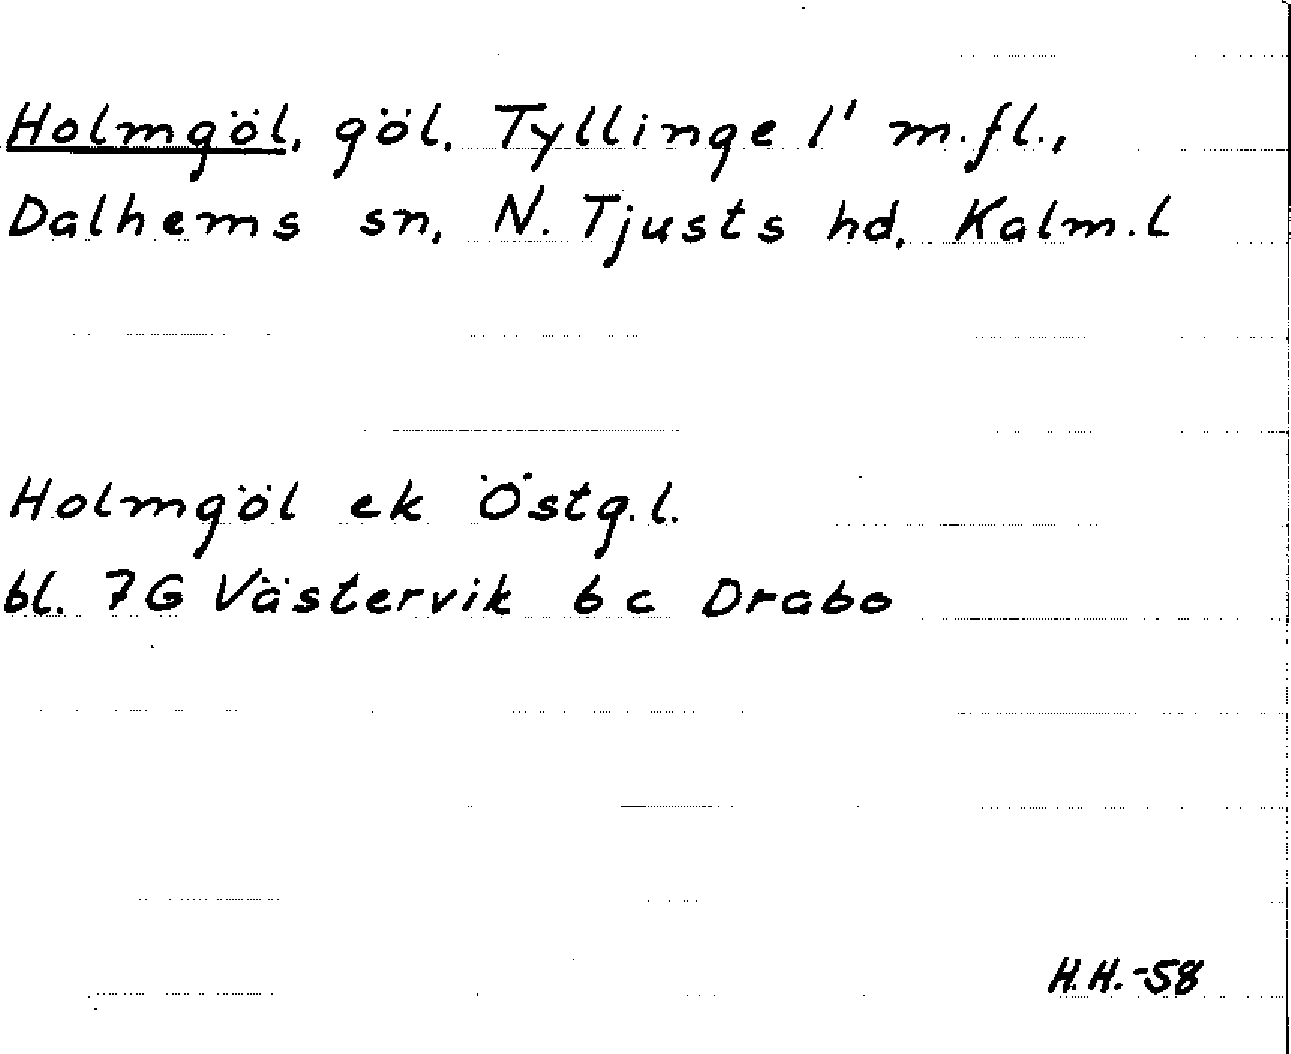 Holmgöl, göl, Tyllinge 1' m.fl.,
Dalhems sn, N. Tjusts hd, Kalm.l
Holmgöl ek Östg.l.
bl. 7G Västervik 6 c Drabo
H.H.-58